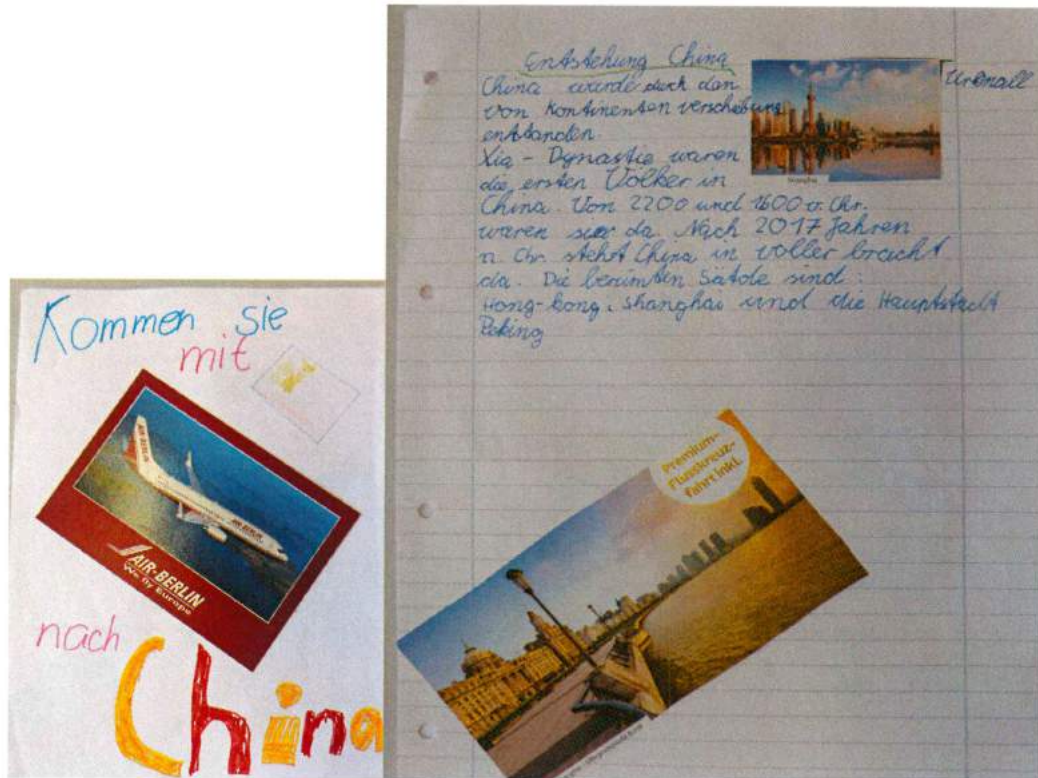 Kommen sie
mit
AIR-BERLIN
AIR-BERLIN
We fly Europe
nach
China
Entstehung China
China wurde durch dan Urknall
von Kontinenten verschebung
entstanden.
Xia-Dynastie waren
die ersten Völker in
Shanghai
China. Von 2200 und 1600 v. Chr.
waren sie da. Nach 2017 Jahren
n. Chr. steht China in voller bracht
da. Die berümten Sätde sind:
Hong-kong, Shanghai und die Hauptstadt
Peking
Premium-
Flusskreuz-
fahrt inkl.